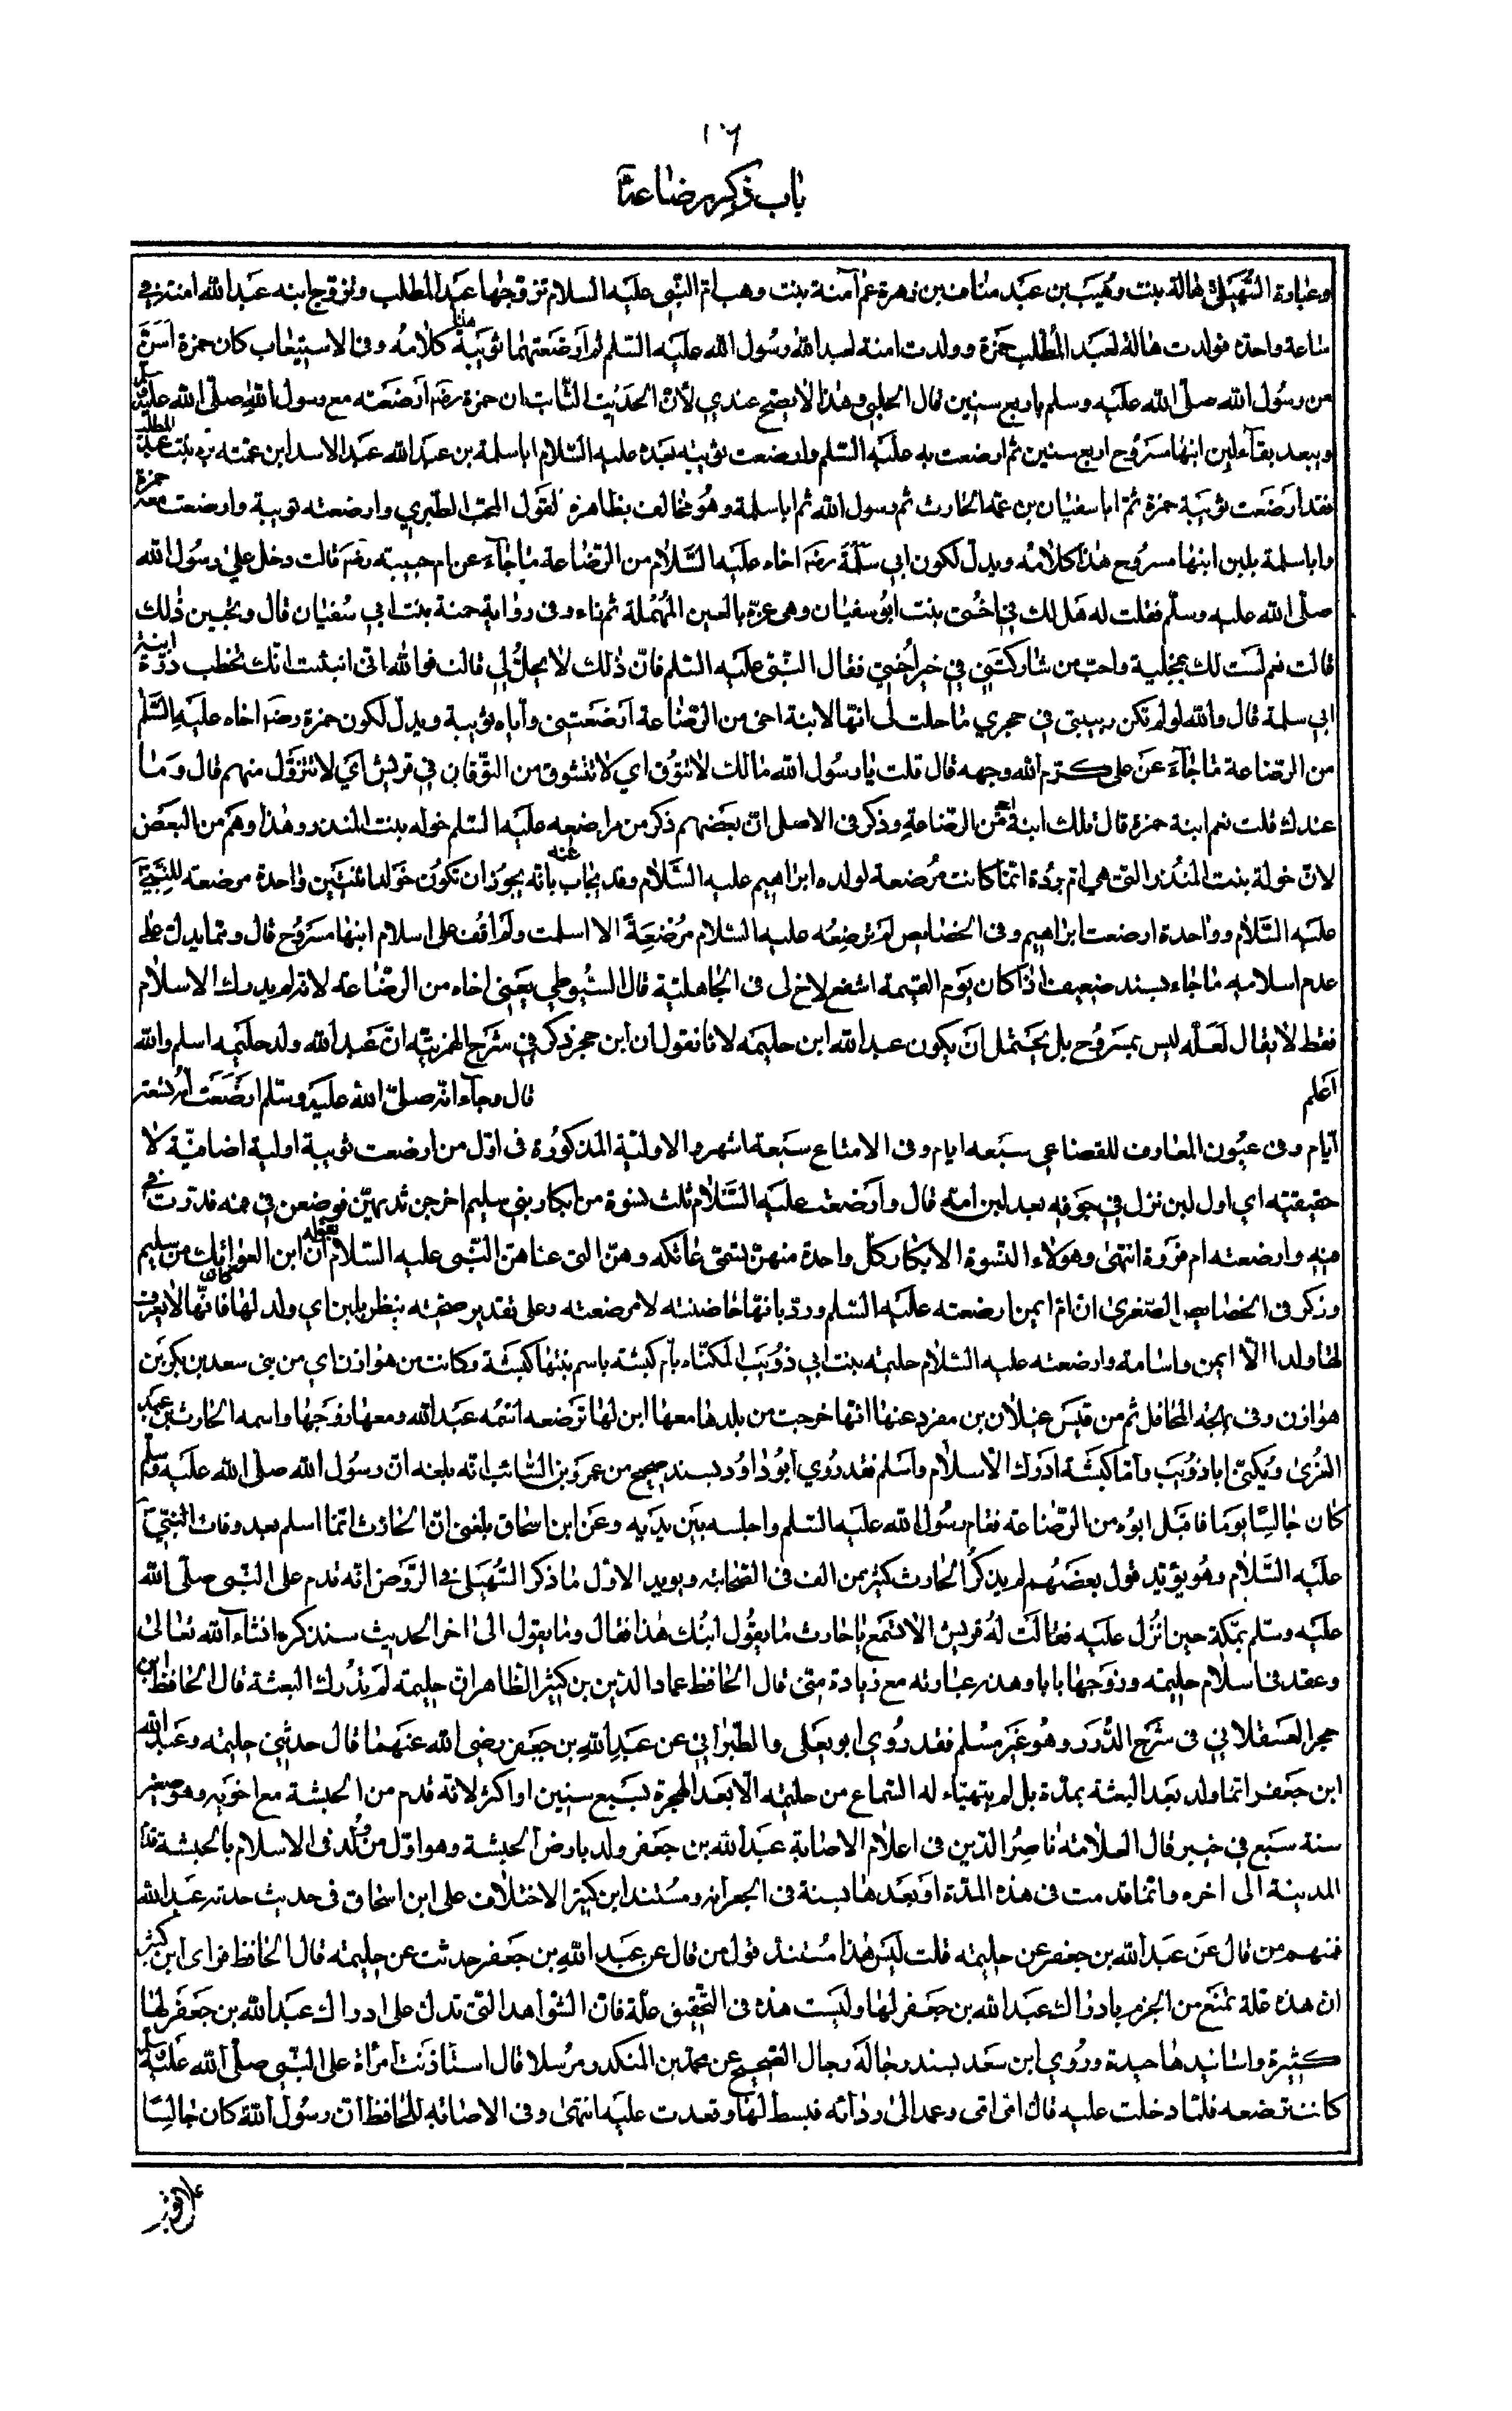 ١٦
باب ذكر رضاعه
وعبارة السهيلى هالة بنت وهيب بن عبد مناف بن زهرة عم آمنة بنت وهب ام النبى عليه السلام تزوجها عبد المطلب وتزوج ابنه عبد الله امنة فى
ساعة واحدة فولدت هالة لعبد المطلب حمزة وولدت امنة لعبد الله رسول الله عليه السلم ثم ارضعتهما ثويبة هنا كلامه وفى الاستيعاب كان حمزة اسن
من رسول الله صلى الله عليه وسلم باربع سنين قال الحلبى وهذا لا يصح عندي لان الحديث الثابت ان حمزة رضه ارضعته مع رسول الله صلى الله عليه وسلم
ويبعد بقاء لبن ابنها مسروح اربع سنين ثم ارضعت به عليه السلم وارضعت ثويبه بعده عليه السلام ابا سلمة بن عبد الله عبد الاسد ابن عمته بره بنت عبد المطلب
فقد ارضعت ثويبة حمزة ثم ابا سفيان بن عمه الحارث ثم رسول الله ثم ابا سلمة وهو مخالف بظاهره لقول المحب الطبري وارضعته ثويبة وارضعت معه حمزة
وابا سلمة بلبن ابنها مسروح هذا كلامه ويدل لكون ابي سلمة رضه اخاه عليه السلام من الرضاعة ما جاء عن ام حبيبه رضه قالت دخل علي رسول الله
صلى الله عليه وسلم فقلت له هل لك في اختى بنت ابو سفيان وهى عزه بالعين المهملة ثم زاء وفى رواية حمنة بنت ابي سفيان قال وتحبين ذلك
قالت نعم لست لك بمخلية واحب من شاركتنى في خير اختي فقال النبى عليه السلم فان ذلك لا يحل لي قالت فوالله انى انبئت انك تخطب درة ابنة
ابي سلمة قال والله لو لم تكن ربيبتى فى حجري ما حلت لى انها لابنة اخى من الرضاعة ارضعتنى واباه ثويبة ويدل لكون حمزة رضه اخاه عليه السلم
من الرضاعة ما جاء عن على كرم الله وجهه قال قلت يا رسول الله مالك لا تتوق اي لا تتشوق من التوقان في قريش اي لا تتزوج منهم قال وما
عندك قلت نعم ابنة حمزة قال تلك ابنة اخى من الرضاعة وذكر فى الاصل ان بعضهم ذكر من مراضعه عليه السلم خوله بنت المنذر وهذا وهم من البعض
لان خولة بنت المنذر التى هي ام بردة انما كانت مرضعة لولده ابراهيم عليه السلام وقد يجاب عنه بانه يجوز ان تكون خولة اثنتين واحدة مرضعة للنبي
عليه السلام وواحدة ارضعت ابراهيم وفى الخصايص لم ترضعه عليه السلام مرضعة الا اسلمت ولم اقف على اسلام ابنها مسروح قال ومما يدل على
عدم اسلامه ما جاء بسند ضعيف اذا كان يوم القيمة اشفع لاخ لى فى الجاهلية قال السيوطي يعنى اخاه من الرضاعة لانه لم يدرك الاسلام
فقط لا يقال لعله ليس بمسروح بل يحتمل ان يكون عبد الله ابن حليمه لانا نقول ان ابن حجر ذكر في شرح الهمزيه ان عبد الله ولد حليمه اسلم والله
اعلم قال وجاء انه صلى الله عليه وسلم ارضعت امه تسعة
ايام وفى عيون المعارف للقضاعي سبعه ايام وفى الامتاع سبعة اشهر والاولية المذكورة فى اول من ارضعت ثويبة اولية اضافية لا
حقيقيه اي اول لبن نزل في جوفه بعد لبن امه قال وارضعت عليه السلام ثلث نسوة من ابكار بني سليم اخرجن ثديهن فوضعن في فمه فدرت فى
فيه وارضعته ام فروة انتهى وهولاء النسوة الابكار كل واحدة منهن تسمى عاتكه وهن التى عناهن النبى عليه السلام بقوله ان ابن العواتك من سليم
وذكر فى الخصايص الصغرى ان ام ايمن ارضعته عليه السلم ورد بانها حاضنته لا مرضعته وعلى تقدير صحته ينظر بلبن اي ولد لها كان فانها لا يعرف
لها ولدا الا ايمن واسامة وارضعته عليه السلام حليمه بنت ابي ذؤيب المكناه بام كبشة باسم بنتها كبشة وكانت من هوازن اي من بني سعد بن بكر بن
هوازن وفى بهجة المحافل ثم من قيس عيلان بن مضر وعنها انها خرجت من بلدها معها ابن لها ترضعه اسمه عبد الله ومعها زوجها واسمه الحارث بن عبد
العزى ويكنى ابا ذؤيب واما كبشة ادرك الاسلام واسلم فقد روي ابو داود بسند صحيح عن عمرو بن السائب انه بلغه ان رسول الله صلى الله عليه وسلم
كان جالسا يوما فاقبل ابوه من الرضاعة فقام رسول الله عليه السلم واجلسه بين يديه وعن ابن اسحاق بلغنى ان الحارث انما اسلم بعد وفات النبي
عليه السلام وهو يؤيد قول بعضهم لم يذكر الحارث كثير ممن الف فى الصحابة ويويد الاول ما ذكر السهيلى فى الروض انه قدم على النبى صلى الله
عليه وسلم بمكة حين انزل عليه فقالت له قريش الا تسمع يا حارث ما يقول ابنك هذا فقال وما يقول الى اخر الحديث سنذكره انشاء الله تعالى
وعقد فى اسلام حليمه وزوجها بابا وهذه عبارته مع زيادة منى قال الحافظ عماد الدين بن كثير الظاهر ان حليمه لم تدرك البعثة قال الحافظ ابن
حجر العسقلاني فى شرح الدرر وهو غير مسلم فقد روي ابو يعلى والطبراني عن عبد الله بن جعفر رضى الله عنهما قال حدثني حليمه وعبد الله
ابن جعفر انما ولد بعد البعثة بمدة بل لم يتهياء له السماع من حليمه الا بعد الهجرة بسبع سنين او اكثر لانه قدم من الحبشة مع اخويه وهو صغير
سنة سبع في خيبر قال العلامة ناصر الدين فى اعلام الاصابة عبد الله بن جعفر ولد بارض الحبشة وهو اول من ولد فى الاسلام بالحبشة قدم
المدينة الى اخره وانما قدمت فى هذه المدة او بعدها بسنة فى الجعرانه ومستند ابن كثير الاختلاف على ابن اسحاق فى حديث حدثه عبد الله
فمنهم من قال عن عبد الله بن جعفر عن حليمه قلت ليس هذا مستند قول من قال عن عبد الله بن جعفر حدثت عن حليمه قال الحافظ فراى ابن كثير
ان هذه علة تمنع من الجزم بادراك عبد الله بن جعفر لها وليست هذه فى التحقيق علة فان الشواهد التى تدل على ادراك عبد الله بن جعفر لها
كثيرة واسانيدها جيدة وروي ابن سعد بسند رجاله رجال الصحيح عن محمد بن المنكدر مرسلا قال استاذنت امرأة على النبى صلى الله عليه وسلم
كانت ترضعه فلما دخلت عليه قال امى امى وعمد الى ردائه فبسط لها وقعدت عليه انتهى وفى الاصابه للحافظ ان رسول الله كان جالسا